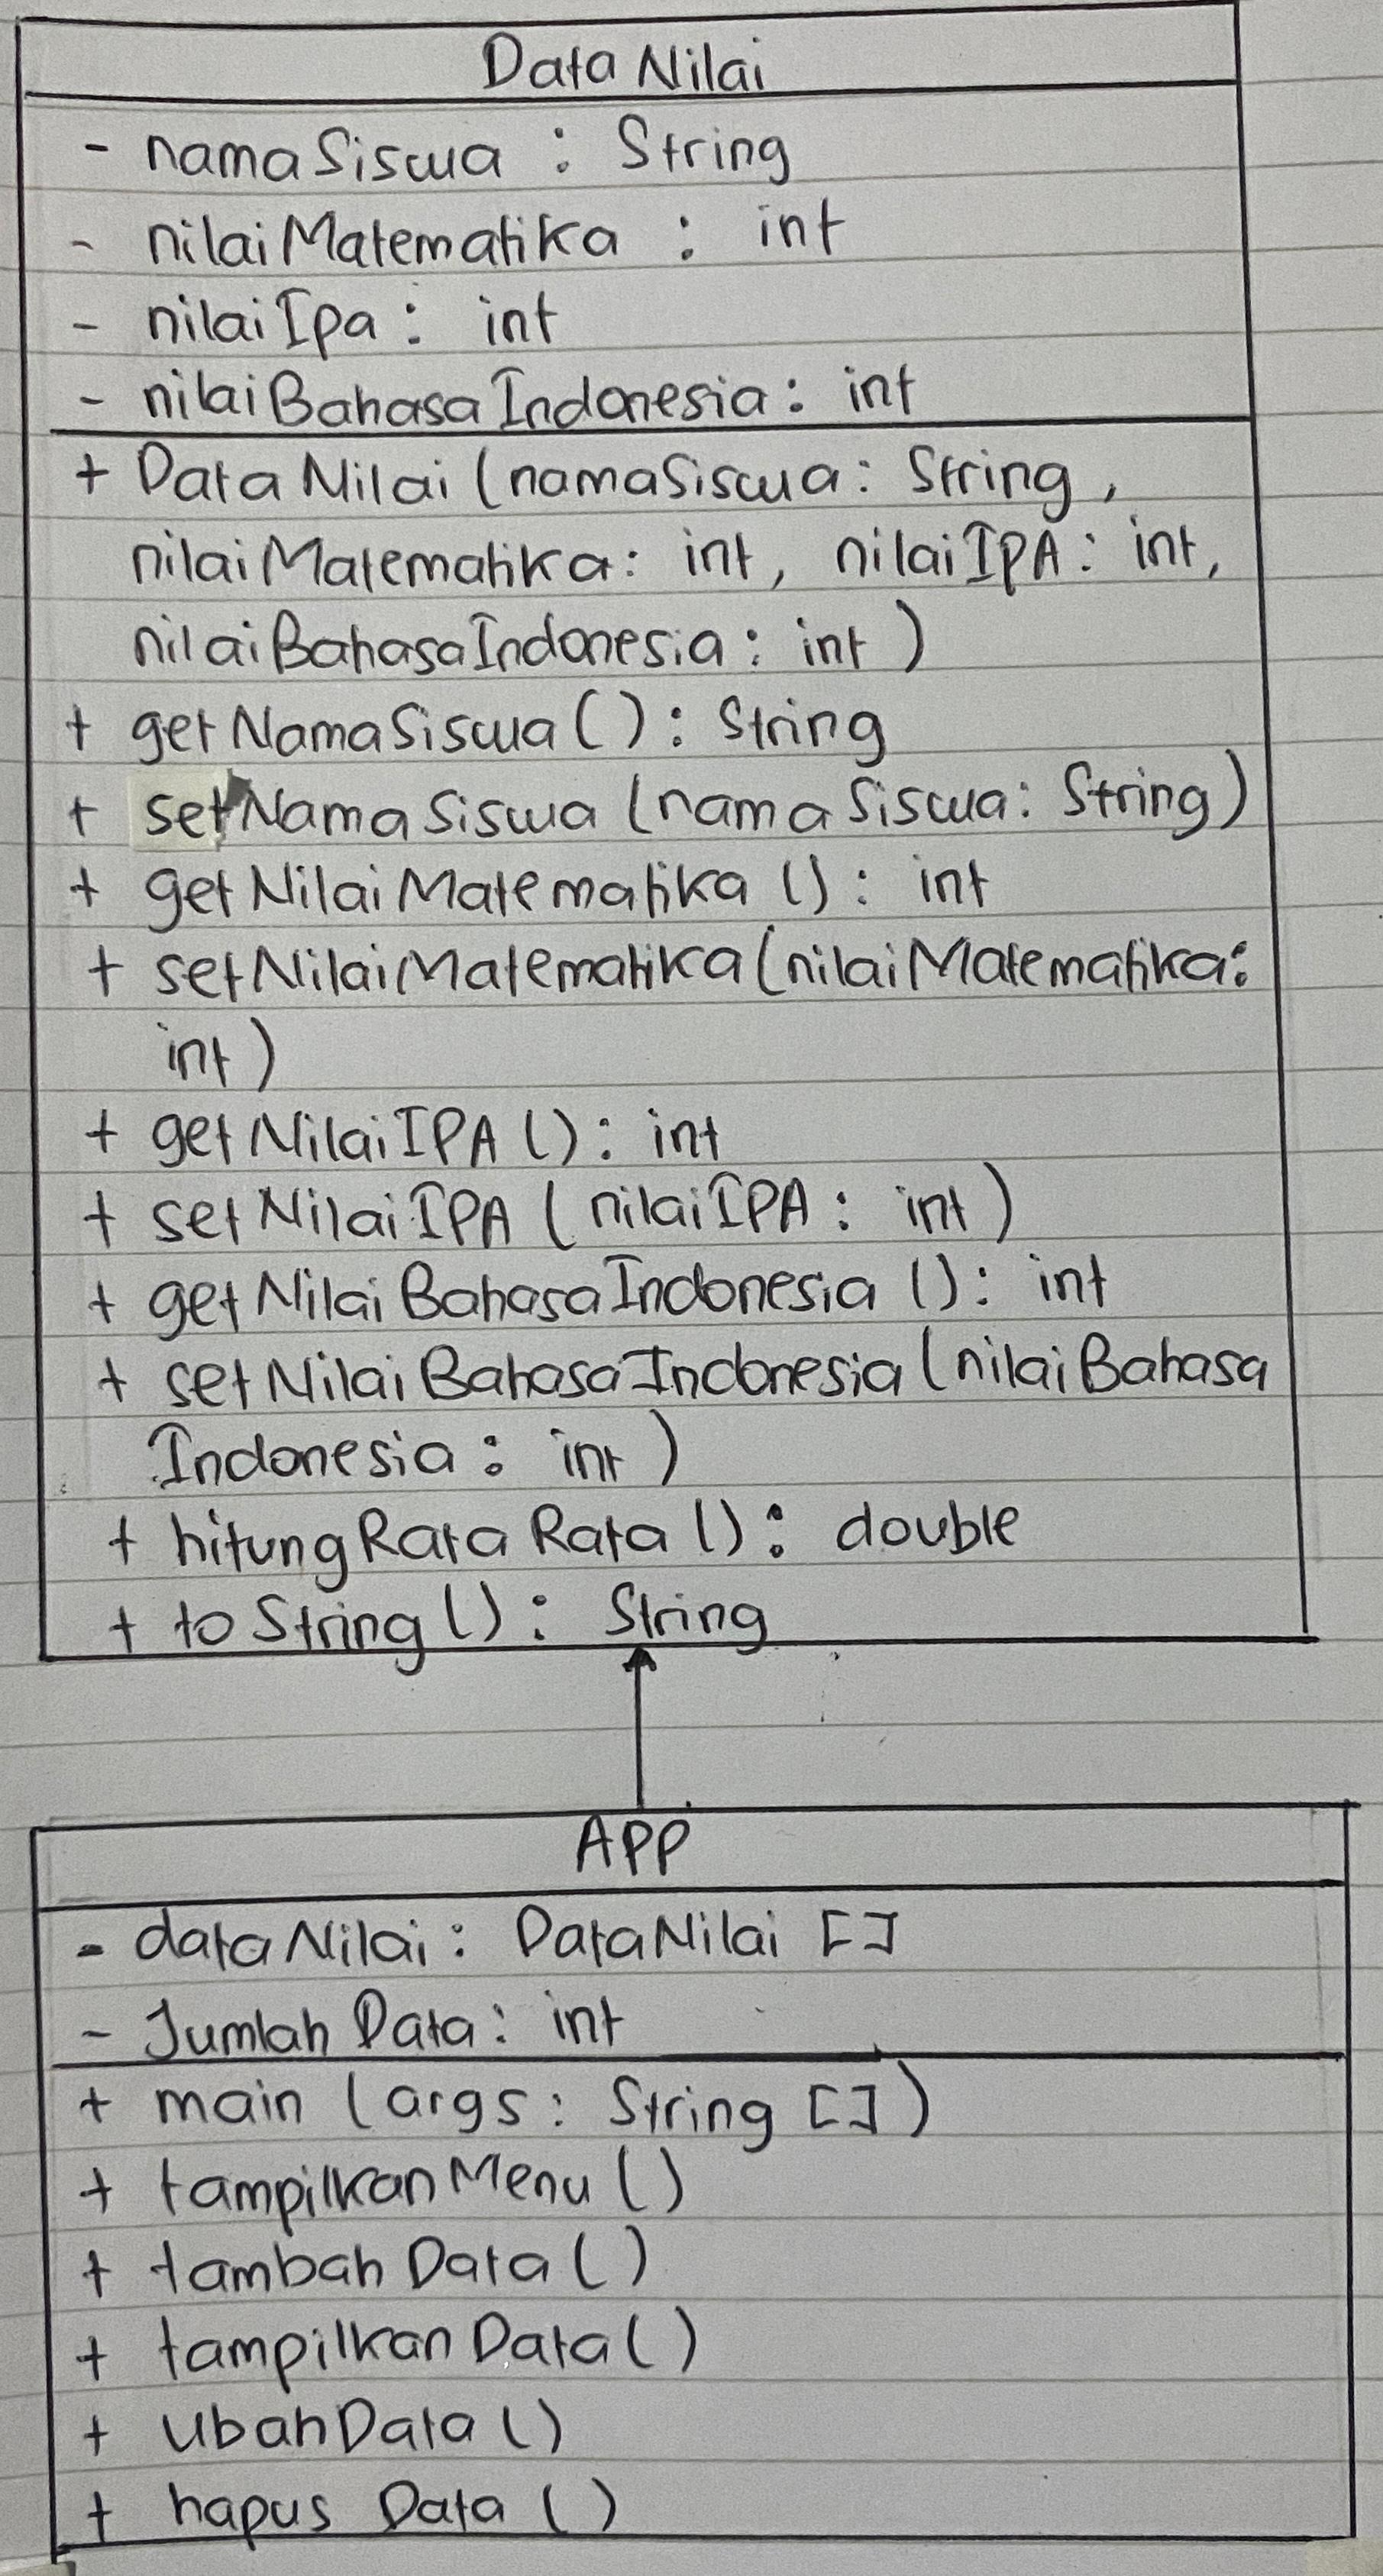 DataNilai
- namaSiswa : String
- nilaiMatematika : int
- nilaiIpa : int
- nilaiBahasaIndonesia : int
+ DataNilai (namaSiswa : String,
nilaiMatematika : int, nilaiIPA : int,
nilaiBahasaIndonesia : int )
+ getNamaSiswa ( ) : String
+ setNamaSiswa (namaSiswa : String)
+ getNilaiMatematika () : int
+ setNilaiMatematika (nilaiMatematika :
int )
+ getNilaiIPA () : int
+ setNilaiIPA ( nilaiIPA : int )
+ getNilaiBahasaIndonesia () : int
+ setNilaiBahasaIndonesia (nilaiBahasa
Indonesia : int )
+ hitungRataRata () : double
+ toString () : String
APP
- dataNilai : DataNilai []
- JumlahData : int
+ main (args : String [] )
+ tampilkanMenu ( )
+ tambahData ( )
+ tampilkanData ( )
+ UbahData ( )
+ hapus Data ( )